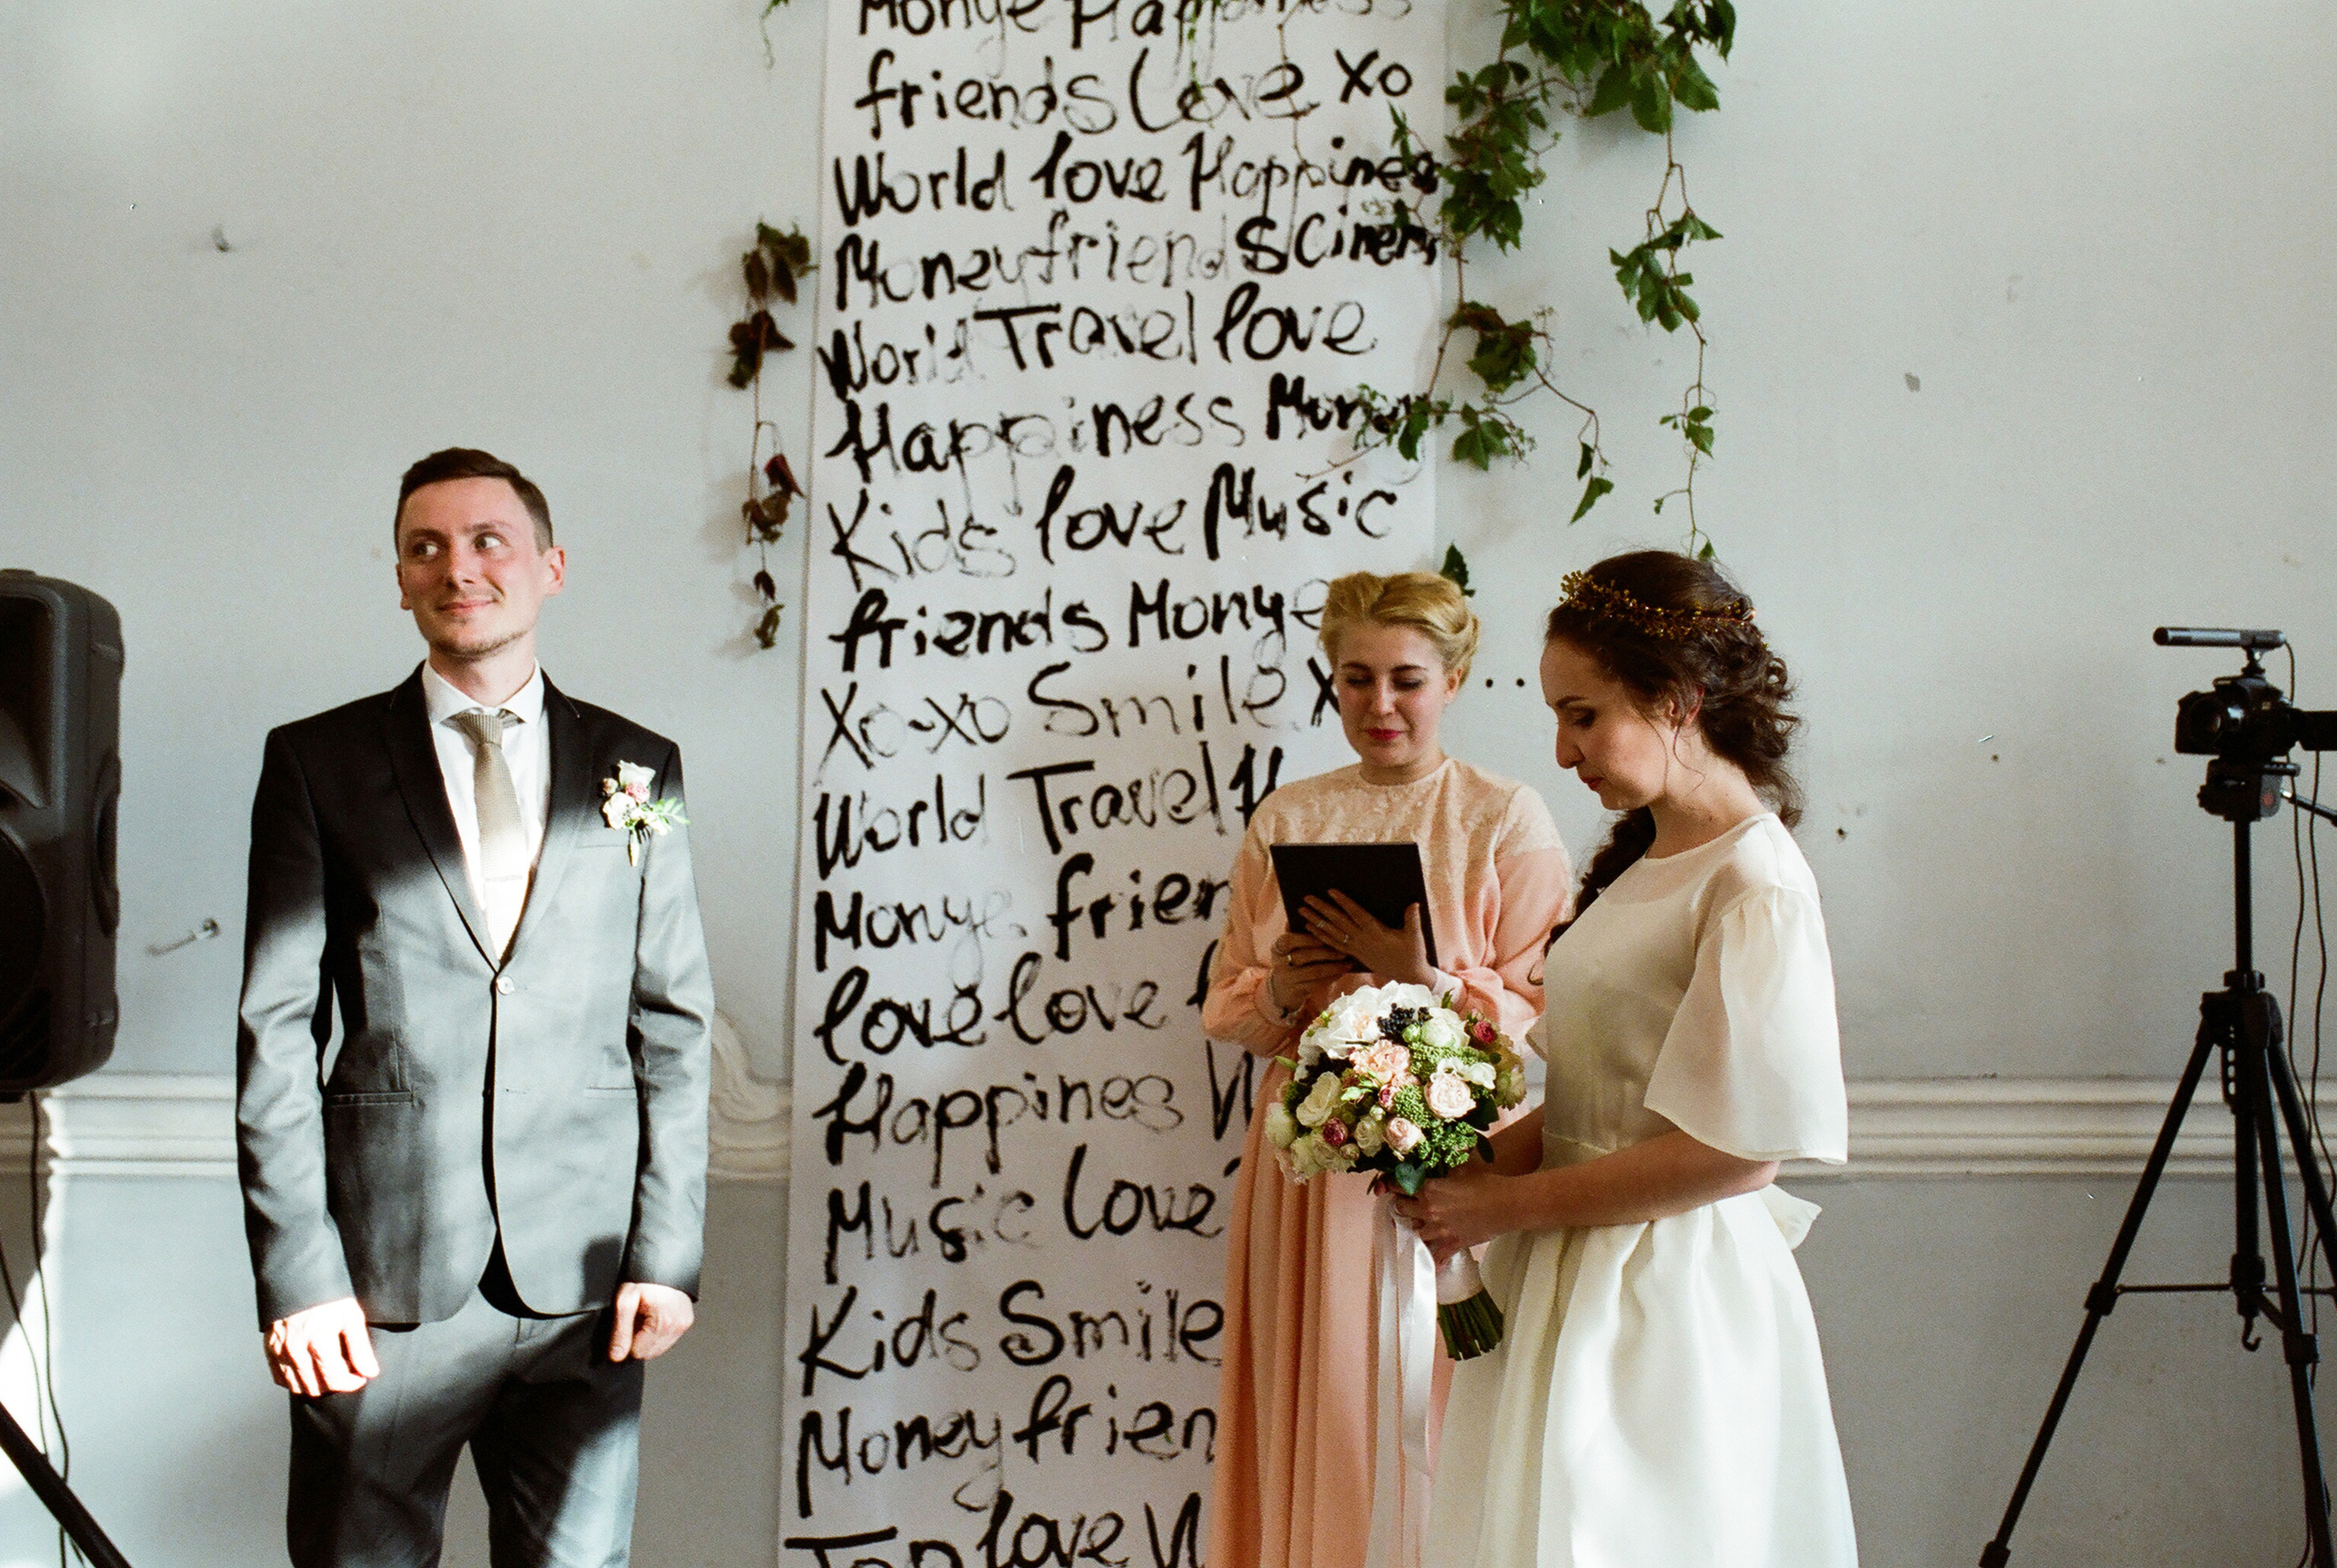 Monye Happiness
friends Love xo
World love Happines
Money friends Cinem
World Travel love
Happiness Money
Kids love Music
friends Monye
Xo-xo Smile X
World Travel H
Monye frien
love love
Happines
Music Love
Kids Smile
Money frien
love